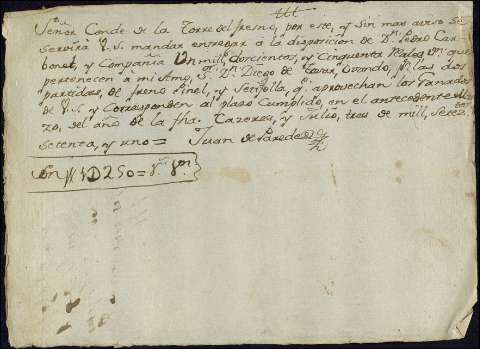 Señor Conde de la Torre del fresno, por este, y sin mas aviso se
servira V.S. mandar entregar à la disposicion de Dn. Pedro Car-
bonel, y Compañia Un mill, dorcientos, y Cinquenta Reales Vn. que
pertenecen à mi Amo, el Sr. Dn. Diego de Tovar, Ovando, por las dos
partidas, de freno Pinel, y q. aprovechan los Ganados
de V.S. y Corresponden al plazo Cumplido, en el antecedente
zo, del año de la fha. Cazeres, y Julio, tres de mill, Setez.tos
Setenta, y uno= Juan de Paredes
Son 1D250= rs. Vn.